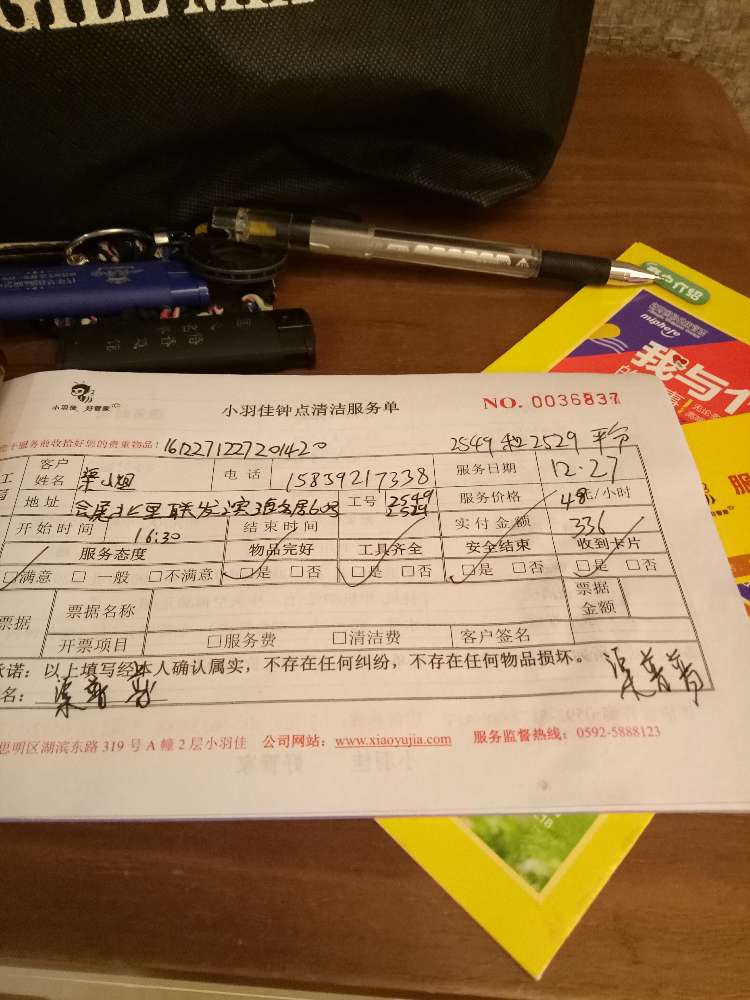 小羽佳 好管家
小羽佳钟点清洁服务单
NO. 0036837
服务前收拾好您的贵重物品!
161227122720142０
2549 2529
客户姓名
小姐
电话
15859217338
服务日期
12.27
地址
北里联发滨海名居603
工号
2549
2529
服务价格
48元/小时
开始时间
16:30
结束时间
实付金额
336
服务态度 物品完好 工具齐全 安全结束 收到卡片
□满意 □一般 □不满意 □是 □否 □是 □否 □是 □否 □是 □否
票据
票据名称
票据金额
开票项目 □服务费 □清洁费 客户签名
承诺:以上填写经本人确认属实,不存在任何纠纷,不存在任何物品损坏。
名:
思明区湖滨东路 319 号 A 幢 2 层小羽佳 公司网站:www.xiaoyujia.com 服务监督热线:0592-5888123
介绍
miphefe
我与